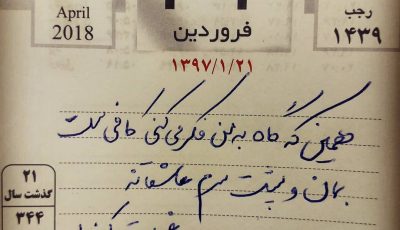 April
2018
فروردین
رجب
۱۴۳۹
۱۳۹۷/۱/۲۱
همین که گاه به من فکر می کنی کافی ست
بمان و
عاشقانه
۲۱
گذشت سال
۳۴۴